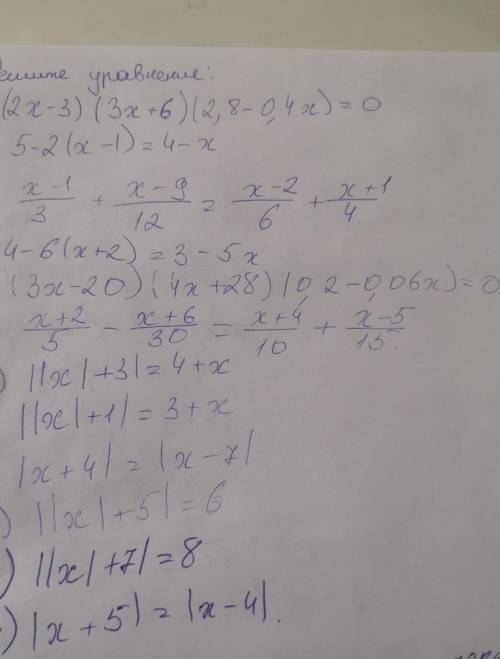 ешите уравнение:
(2x-3)(3x+6)(2,8-0,4x)=0
5-2(x-1)=4-x
x-1/3 + x-9/12 = x-2/6 + x+1/4
4-6(x+2)=3-5x
(3x-20)(4x+28)(0,2-0,06x)=0
x+2/5 - x+6/30 = x+4/10 + x-5/15.
) ||x|+3|=4+x
||x|+1|=3+x
|x+4|=|x-7|
) ||x|+5|=6
) ||x|+7|=8
) |x+5|=|x-4|.